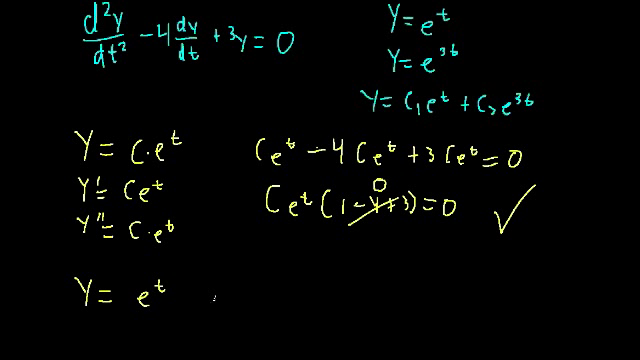 d²y/dt² - 4 dy/dt + 3y = 0
y = e^t
y = e^3t
y = c₁e^t + c₂e^3t
y = c·e^t
y' = ce^t
y'' = c·e^t
ce^t - 4ce^t + 3ce^t = 0
0
ce^t (1 - 4 + 3) = 0 ✓
y = e^t